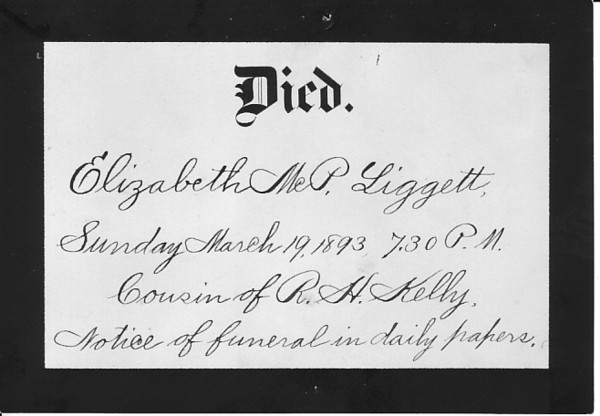 Died.
Elizabeth McP. Liggett,
Sunday March 19, 1893 7.30 P.M.
Cousin of R. H. Kelly.
Notice of funeral in daily papers.